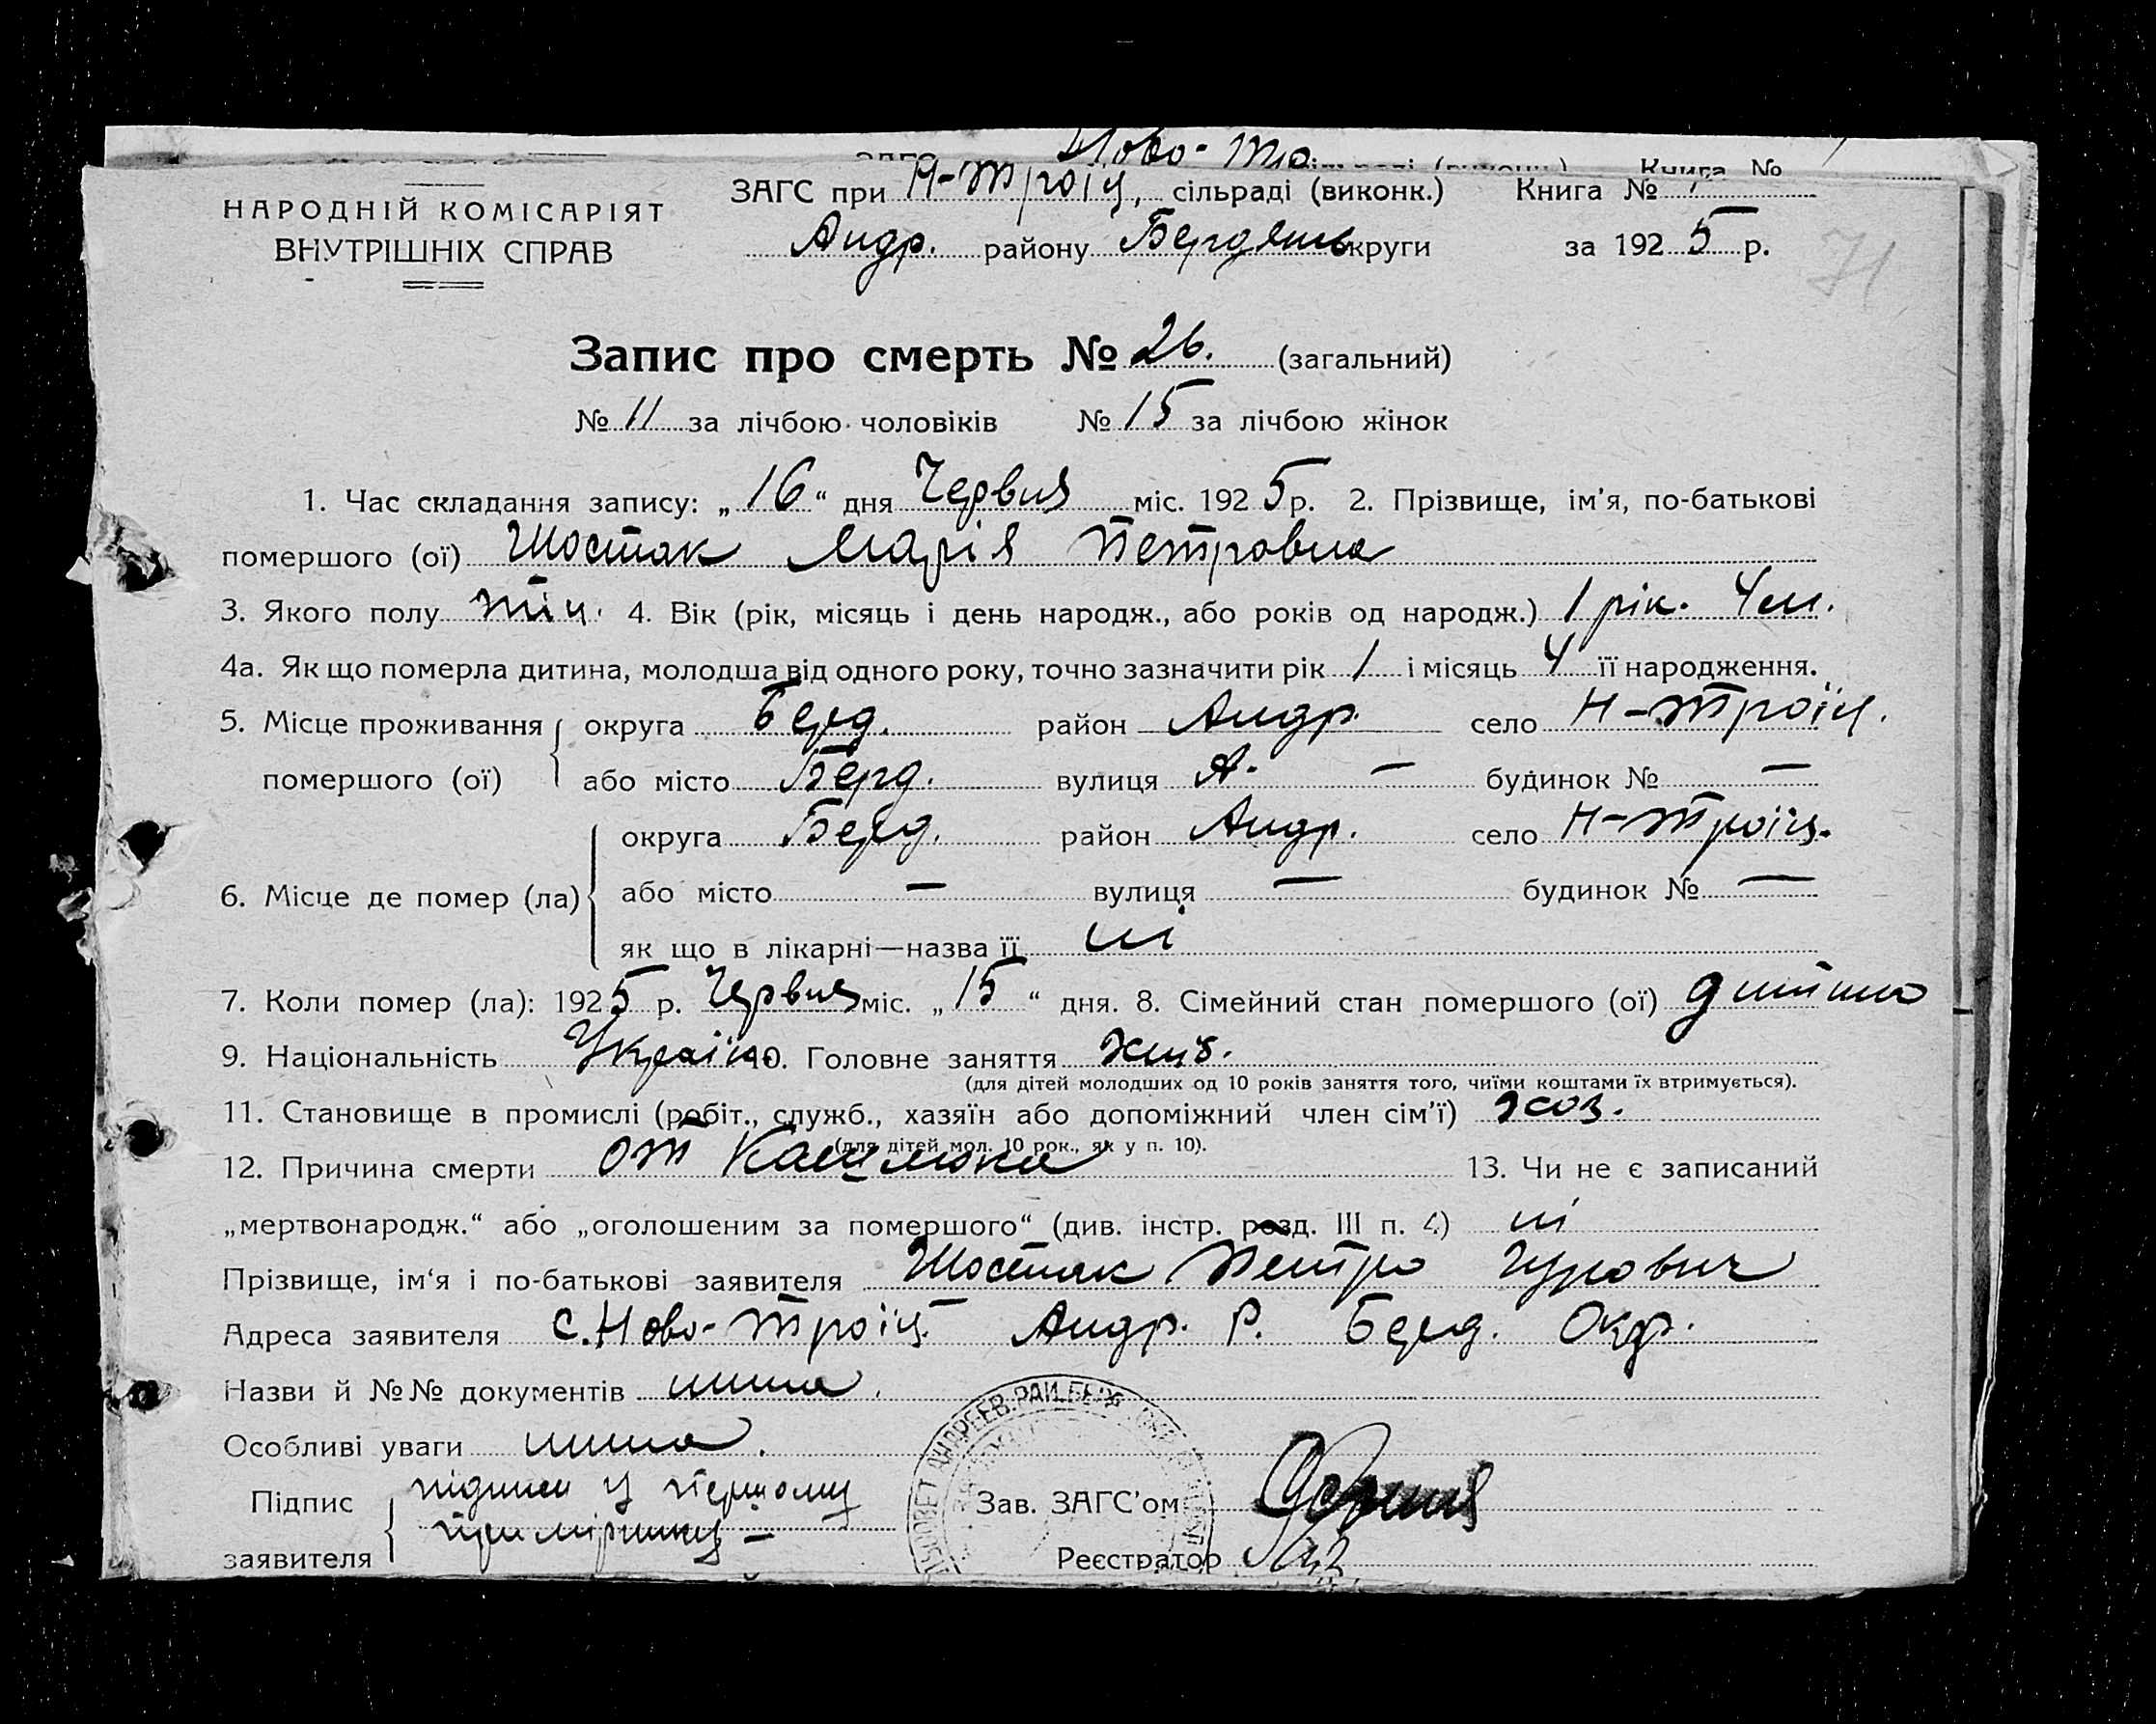 Ново-Тро
НАРОДНІЙ КОМІСАРІЯТ
ВНУТРІШНІХ СПРАВ
ЗАГС при Н-Троїц, сільраді (виконк.) Книга №
Андр. району Бердянсь округи за 192 5 р.
71
Запис про смерть № 26. (загальний)
№ 11 за лічбою чоловіків № 15 за лічбою жінок
1. Час складання запису: „ 16 “ дня Червня міс. 192 5 р. 2. Прізвище, ім'я, по-батькові
помершого (ої) Шостак Марія Петровна
3. Якого полу жін. 4. Вік (рік, місяць і день народж., або років од народж.) 1 рік. 4 м.
4а. Як що померла дитина, молодша від одного року, точно зазначити рік 1 і місяць 4 її народження.
5. Місце проживання помершого (ої) округа Берд. район Андр. село Н-Троїц.
або місто Берд. вулиця А. — будинок № —
6. Місце де помер (ла) округа Берд. район Андр. село Н-Троїц.
або місто — вулиця — будинок № —
як що в лікарні—назва її ні
7. Коли помер (ла): 192 5 р. Червня міс. „ 15 “ дня. 8. Сімейний стан помершого (ої) дитина
9. Національність Україн 10. Головне заняття
(для дітей молодших од 10 років заняття того, чиїми коштами їх втримується).
11. Становище в промислі (робіт., служб., хазяїн або допоміжний член сім'ї) хоз.
(для дітей мол. 10 рок., як у п. 10).
12. Причина смерти от Кашлюка 13. Чи не є записаний
„мертвонародж.“ або „оголошеним за помершого“ (див. інстр. розд. III п. 4) ні
Прізвище, ім'я і по-батькові заявителя Шостак Петро Гурович
Адреса заявителя с. Ново-Троїц. Андр. Р. Берд. Окр.
Назви й №№ документів нима.
Особливі уваги нима.
Підпис заявителя підписи у першому примірнику —
Зав. ЗАГС'ом
Реєстратор
АНДРЕЕВ. РАЙ. БЕРД